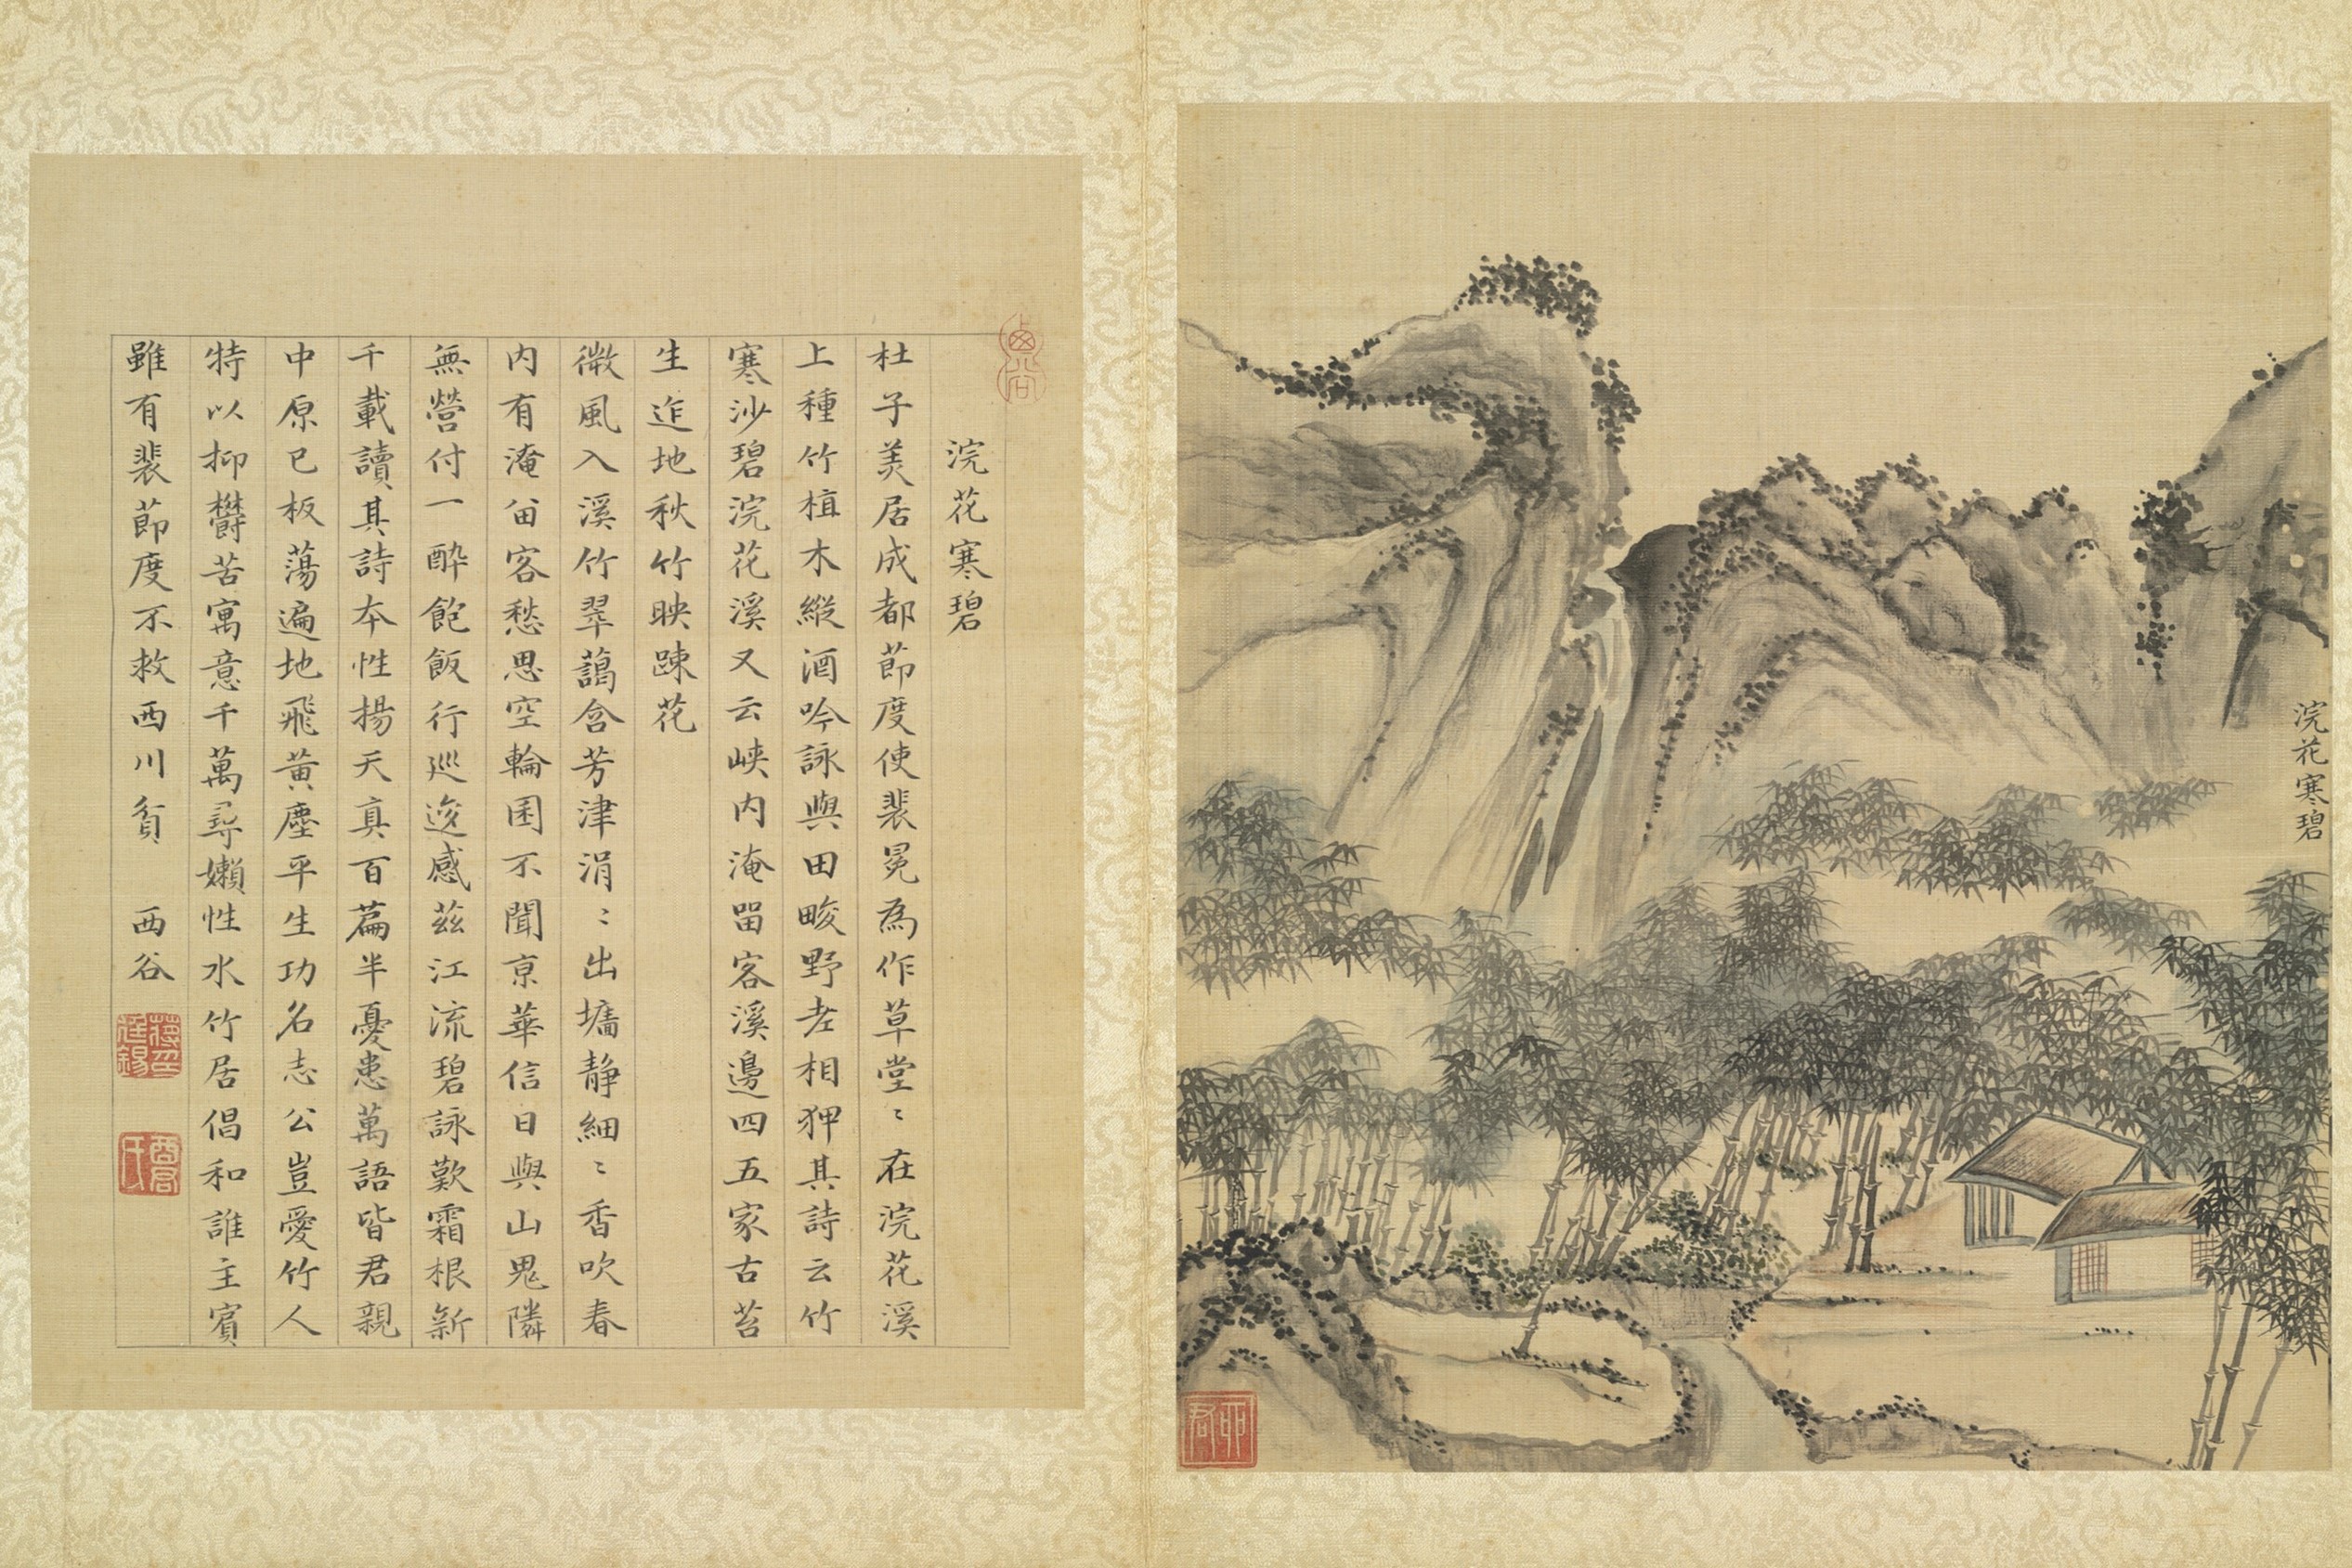 浣花寒碧
浣花寒碧
杜子美居成都節度使裴冕為作草堂〻在浣花溪
上種竹植木縱酒吟詠與田畯野老相狎其詩云竹
寒沙碧浣花溪又云峽内淹畱客溪邊四五家古苔
生迮地秋竹映踈花
微風入溪竹翠藹含芳津涓〻出墉静細〻香吹春
内有淹畱客愁思空輪囷不聞京華信日與山鬼隣
無營付一酔飽飯行巡逡感茲江流碧詠歎霜根新
千載讀其詩本性揚天真百篇半憂患萬語皆君親
中原已板蕩遍地飛黄塵平生功名志公豈愛竹人
特以抑欝苦寓意千萬尋嬾性水竹居倡和誰主賓
雖有裴節度不救西川貧 西谷
蔣印廷錫